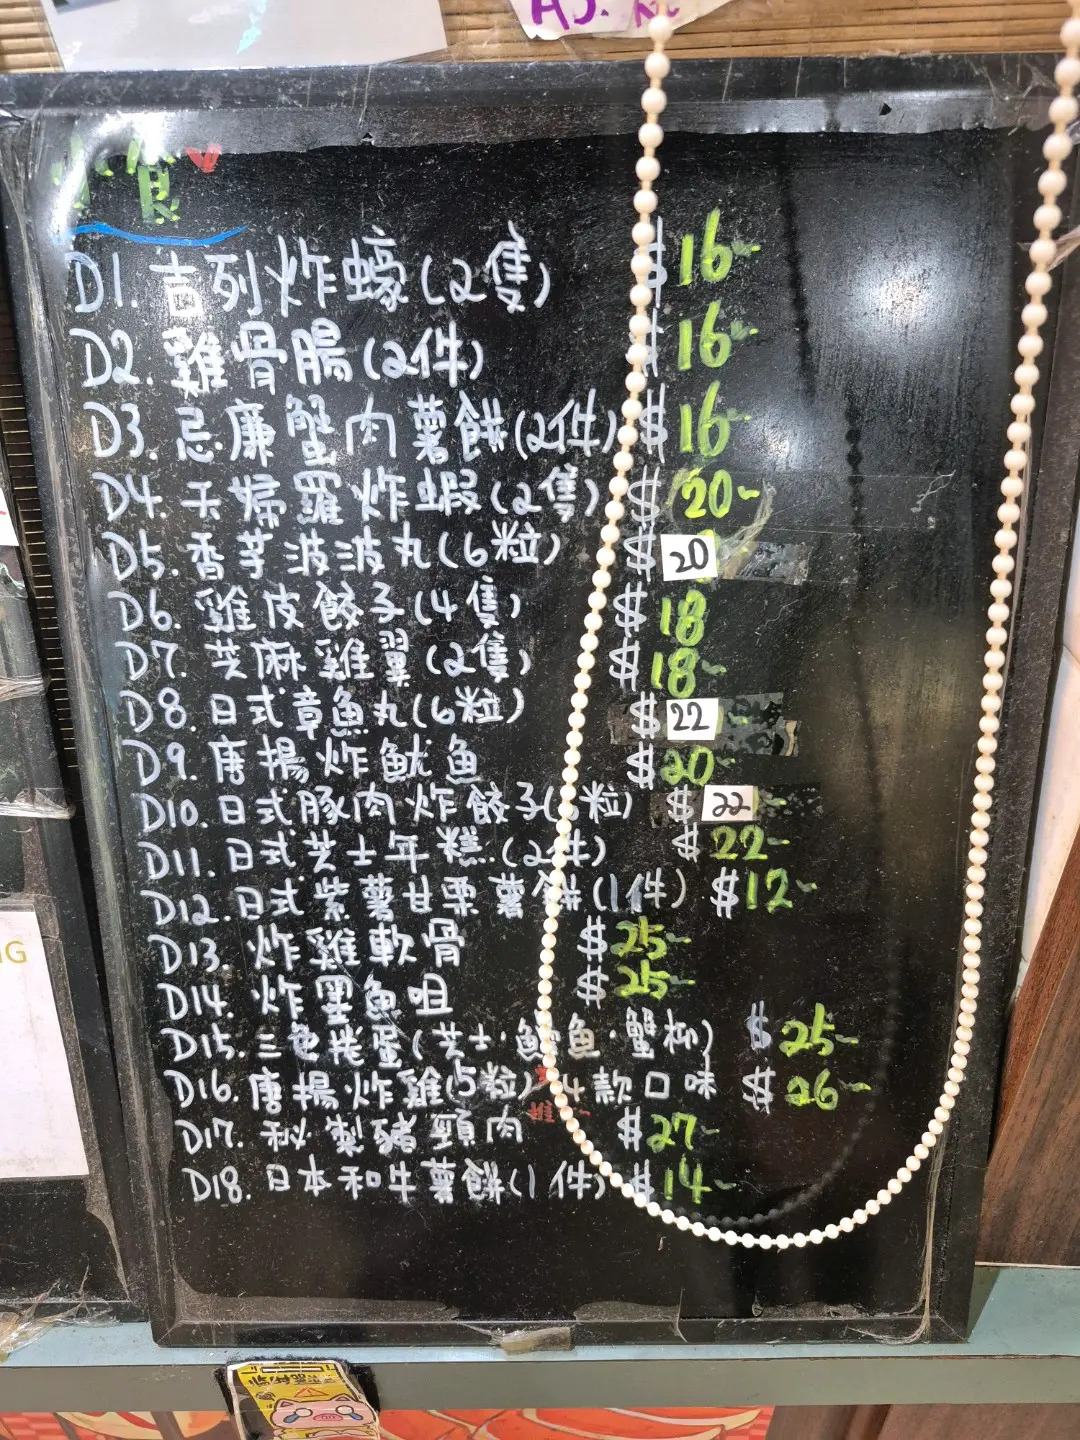 小食
D1. 吉列炸蠔(2隻) $16-
D2. 雞骨腸(2件) $16-
D3. 忌廉蟹肉薯餅(2件) $16-
D4. 天婦羅炸蝦(2隻) $20-
D5. 香芋波波丸(6粒) $20
D6. 雞皮餃子(4隻) $18
D7. 芝麻雞翼(2隻) $18-
D8. 日式章魚丸(6粒) $22-
D9. 唐揚炸魷魚 $20-
D10. 日式豚肉炸餃子( 粒) $22
D11. 日式芝士年糕(2件) $22-
D12. 日式紫薯甘栗薯餅(1件) $12-
D13. 炸雞軟骨 $25-
D14. 炸墨魚咀 $25-
D15. 三色捲蛋(芝士·鰻魚·蟹柳) $25-
D16. 唐揚炸雞(5粒) 4款口味 $26-
D17. 秘製豬頸肉 $27-
D18. 日本和牛薯餅(1件) $14-